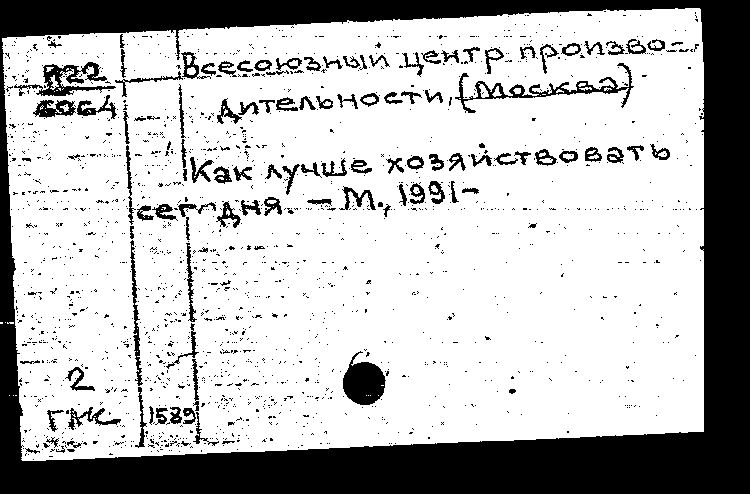 П22
6064
Всесоюзный центр произво-
дительности, (Москва)
Как лучше хозяйствовать
сегодня. — М., 1991-
2
1589